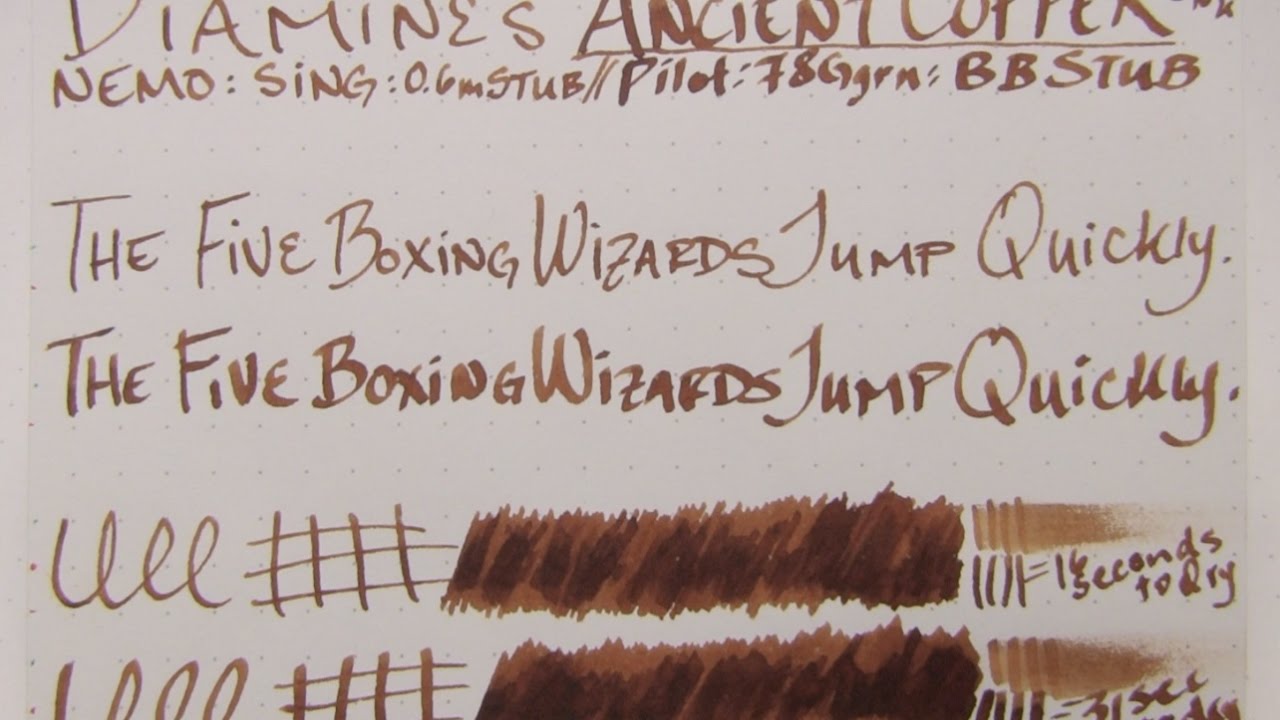 DIAMINE'S ANCIENT COPPER INK
NEMO: SING: 0.6mSTUB // Pilot: 78Ggrn: BB STUB
THE FIVE BOXING WIZARDS JUMP Quickly.
THE FIVE BOXING WIZARDS JUMP Quickly.
seconds
to dry
= 31 sec